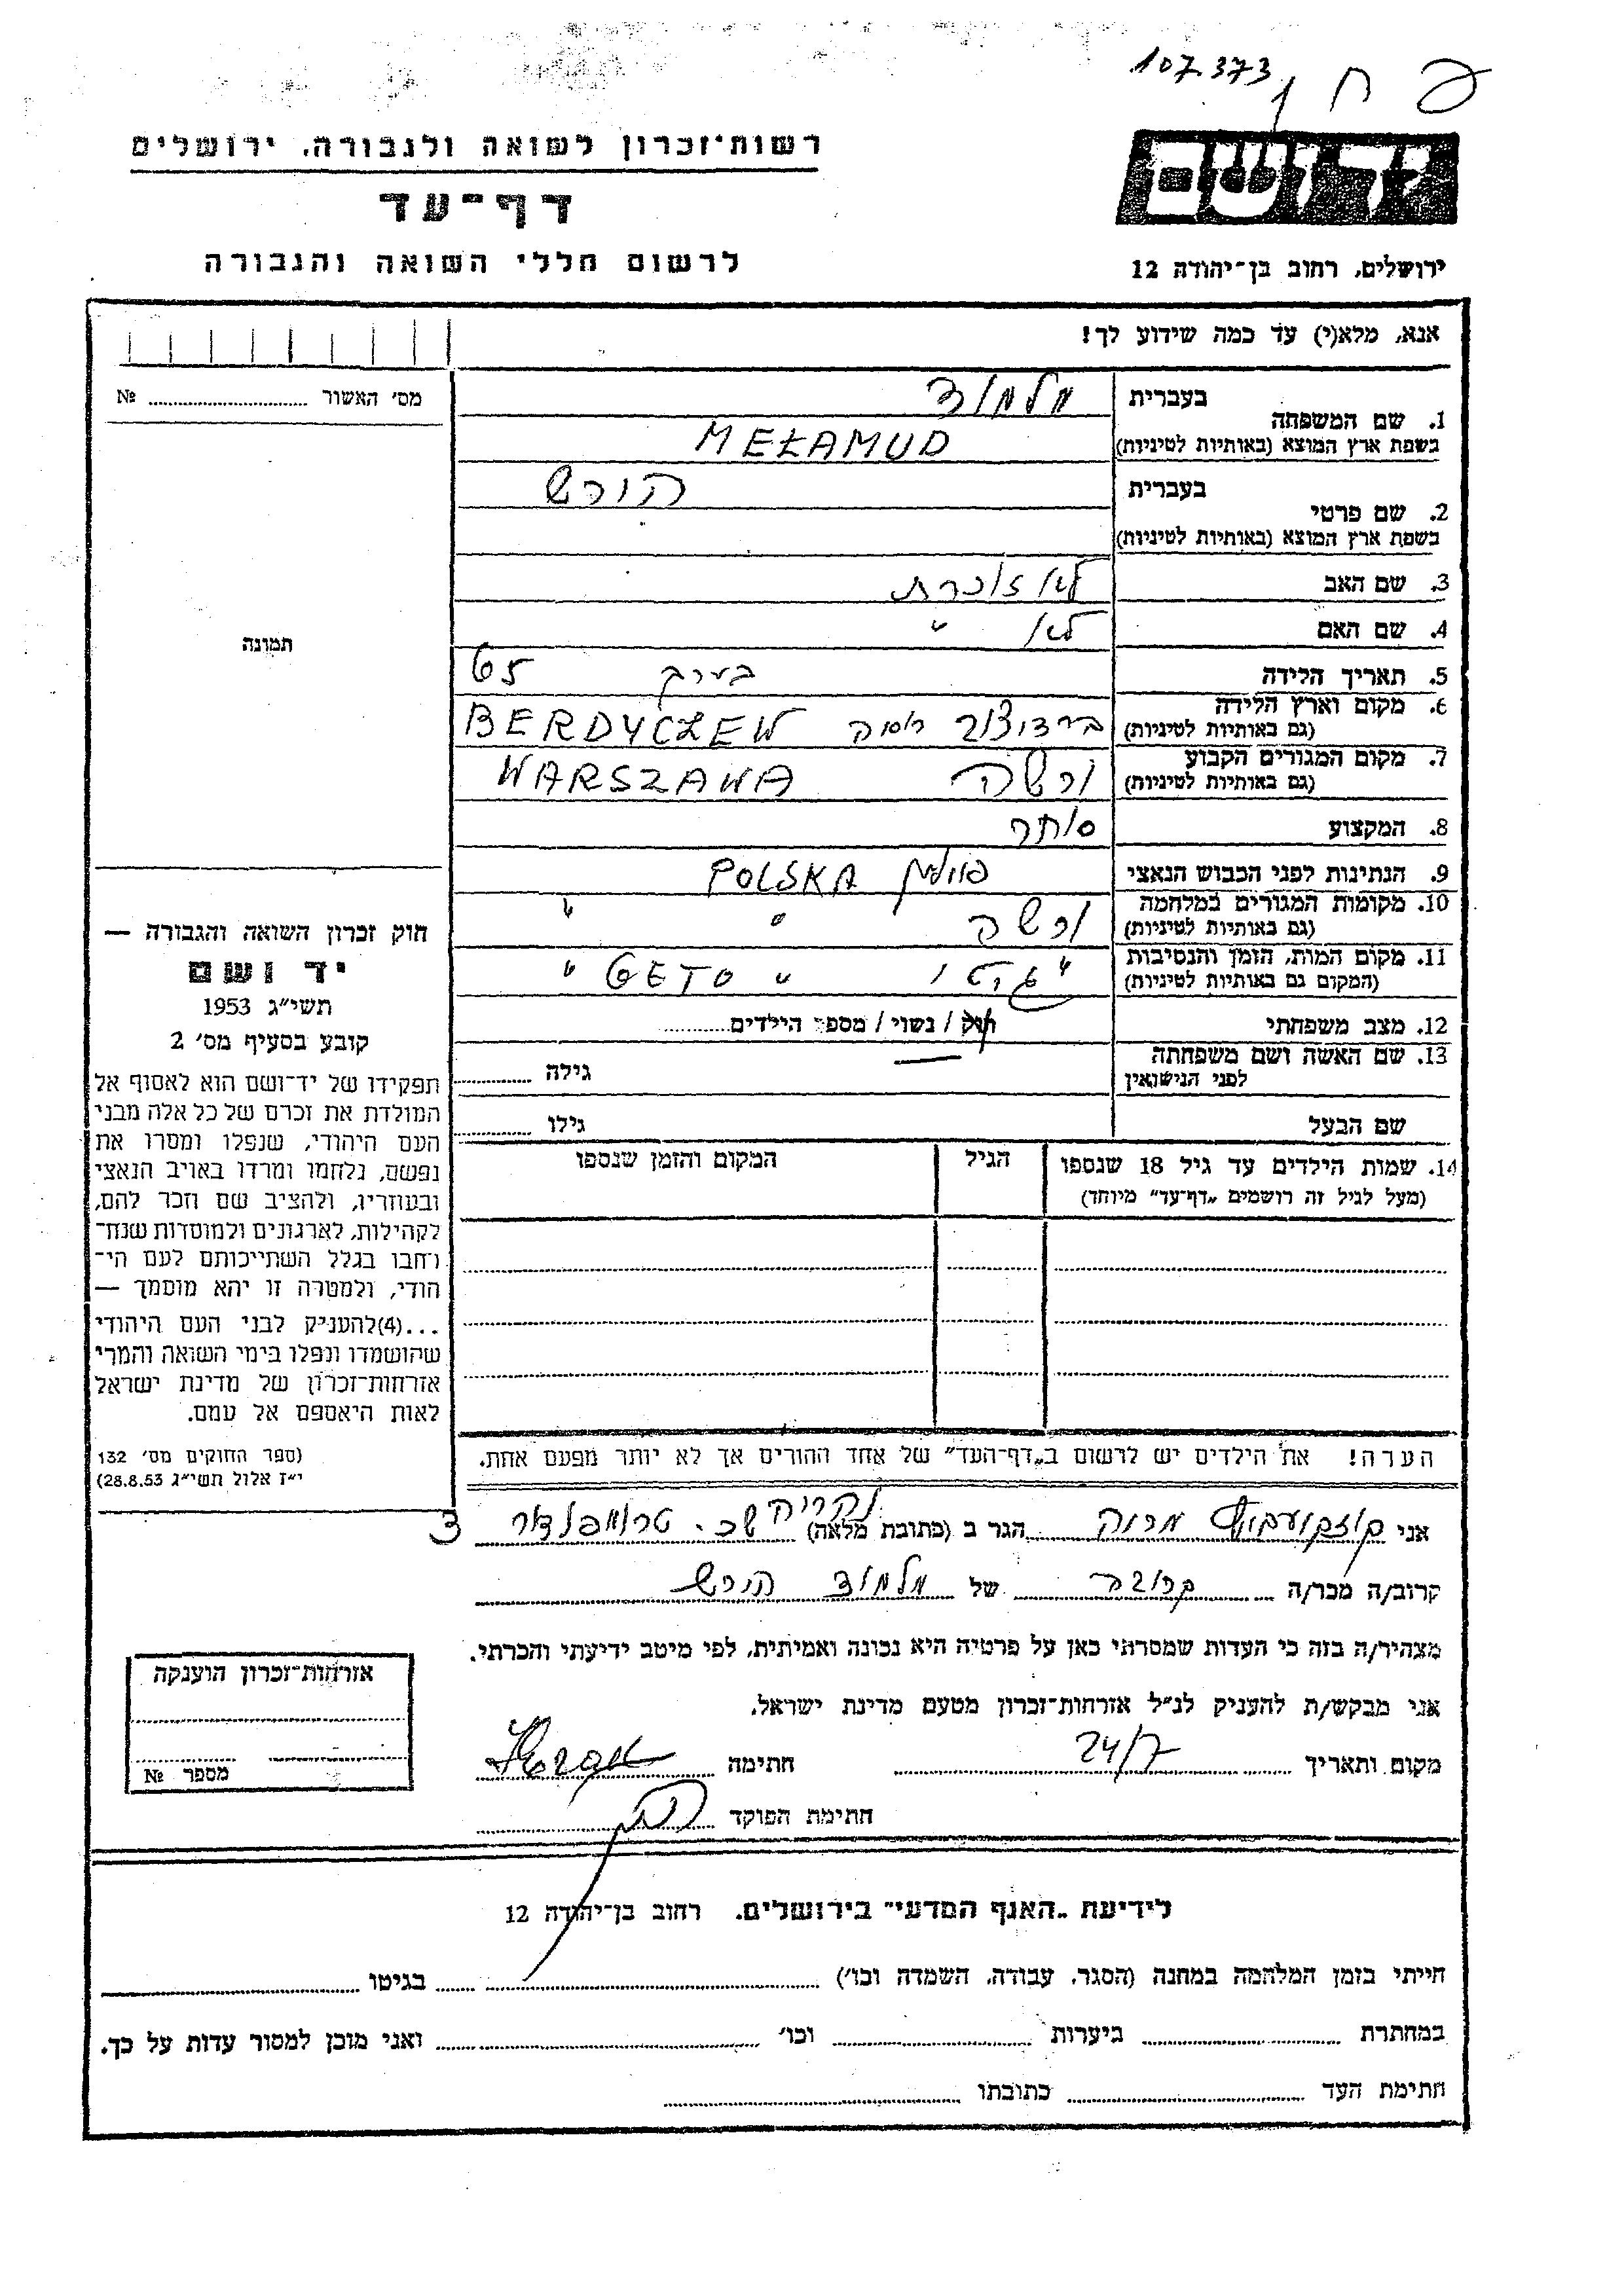 107.373
רשות־זכרון לשואה ולגבורה, ירושלים
יד ושם
דף־עד
לרשום חללי השואה והגבורה
ירושלים, רחוב בן־יהודה 12
אנא, מלא(י) עד כמה שידוע לך!
מס׳ האשור № 
1. שם המשפחה בעברית מלמוד
בשפת ארץ המוצא (באותיות לטיניות) MEŁAMUD
2. שם פרטי בעברית הורש
בשפת ארץ המוצא (באותיות לטיניות)
3. שם האב לא זוכרת
4. שם האם לא "
5. תאריך הלידה בערך 65
6. מקום וארץ הלידה (גם באותיות לטיניות) ברדוצוב רוסיה BERDYCZEW
7. מקום המגורים הקבוע (גם באותיות לטיניות) ורשה WARSZAWA
8. המקצוע סוחר
9. הנתינות לפני הכבוש הנאצי פולין POLSKA
10. מקומות המגורים במלחמה (גם באותיות לטיניות) ורשה " "
11. מקום המות, הזמן והנסיבות (המקום גם באותיות לטיניות) " גטו " GETO "
12. מצב משפחתי רווק / נשוי / מספר הילדים
13. שם האשה ושם משפחתה לפני הנישואין — גילה
שם הבעל גילו
14. שמות הילדים עד גיל 18 שנספו הגיל המקום והזמן שנספו
(מעל לגיל זה רושמים „דף־עד" מיוחד)
הערה! את הילדים יש לרשום ב„דף־העד" של אחד ההורים אך לא יותר מפעם אחת.
תמונה
חוק זכרון השואה והגבורה —
יד ושם
תשי״ג 1953
קובע בסעיף מס׳ 2
תפקידו של יד־ושם הוא לאסוף אל
המולדת את זכרם של כל אלה מבני
העם היהודי, שנפלו ומסרו את
נפשם, נלחמו ומרדו באויב הנאצי
ובעוזריו, ולהציב שם וזכר להם,
לקהילות, לארגונים ולמוסדות שנח־
רחבו בגלל השתייכותם לעם הי־
הודי, ולמטרה זו יהא מוסמך —
...(4)להעניק לבני העם היהודי
שהושמדו ונפלו בימי השואה והמרי
אזרחות־זכרון של מדינת ישראל
לאות היאספם אל עמם.
(ספר החוקים מס׳ 132
י״ז אלול תשי״ג 28.8.53)
אני מרוה הגר ב (כתובת מלאה) שכ. טרומפלדור 3
קרוב/ה מכר/ה קרובה של מלמוד הורש
מצהיר/ה בזה כי העדות שמסרתי כאן על פרטיה היא נכונה ואמיתית, לפי מיטב ידיעתי והכרתי.
אני מבקש/ת להעניק לנ״ל אזרחות־זכרון מטעם מדינת ישראל.
מקום ותאריך 24/7 חתימה
חתימת הפוקד
אזרחות־זכרון הוענקה
מספר №
לידיעת „האגף המדעי" בירושלים, רחוב בן־יהודה 12
חייתי בזמן המלחמה במחנה (הסגר, עבודה, השמדה וכו׳) בגיטו
במחתרת ביערות וכו׳ ואני מוכן למסור עדות על כך.
חתימת העד כתובתו